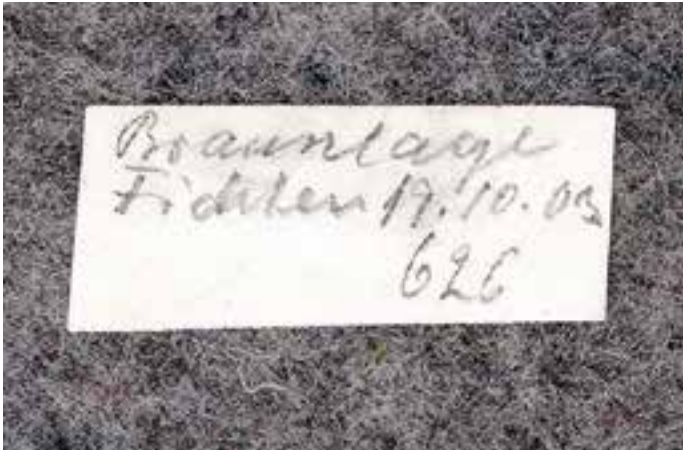 Braunlage
Fichten 19.10.03
626